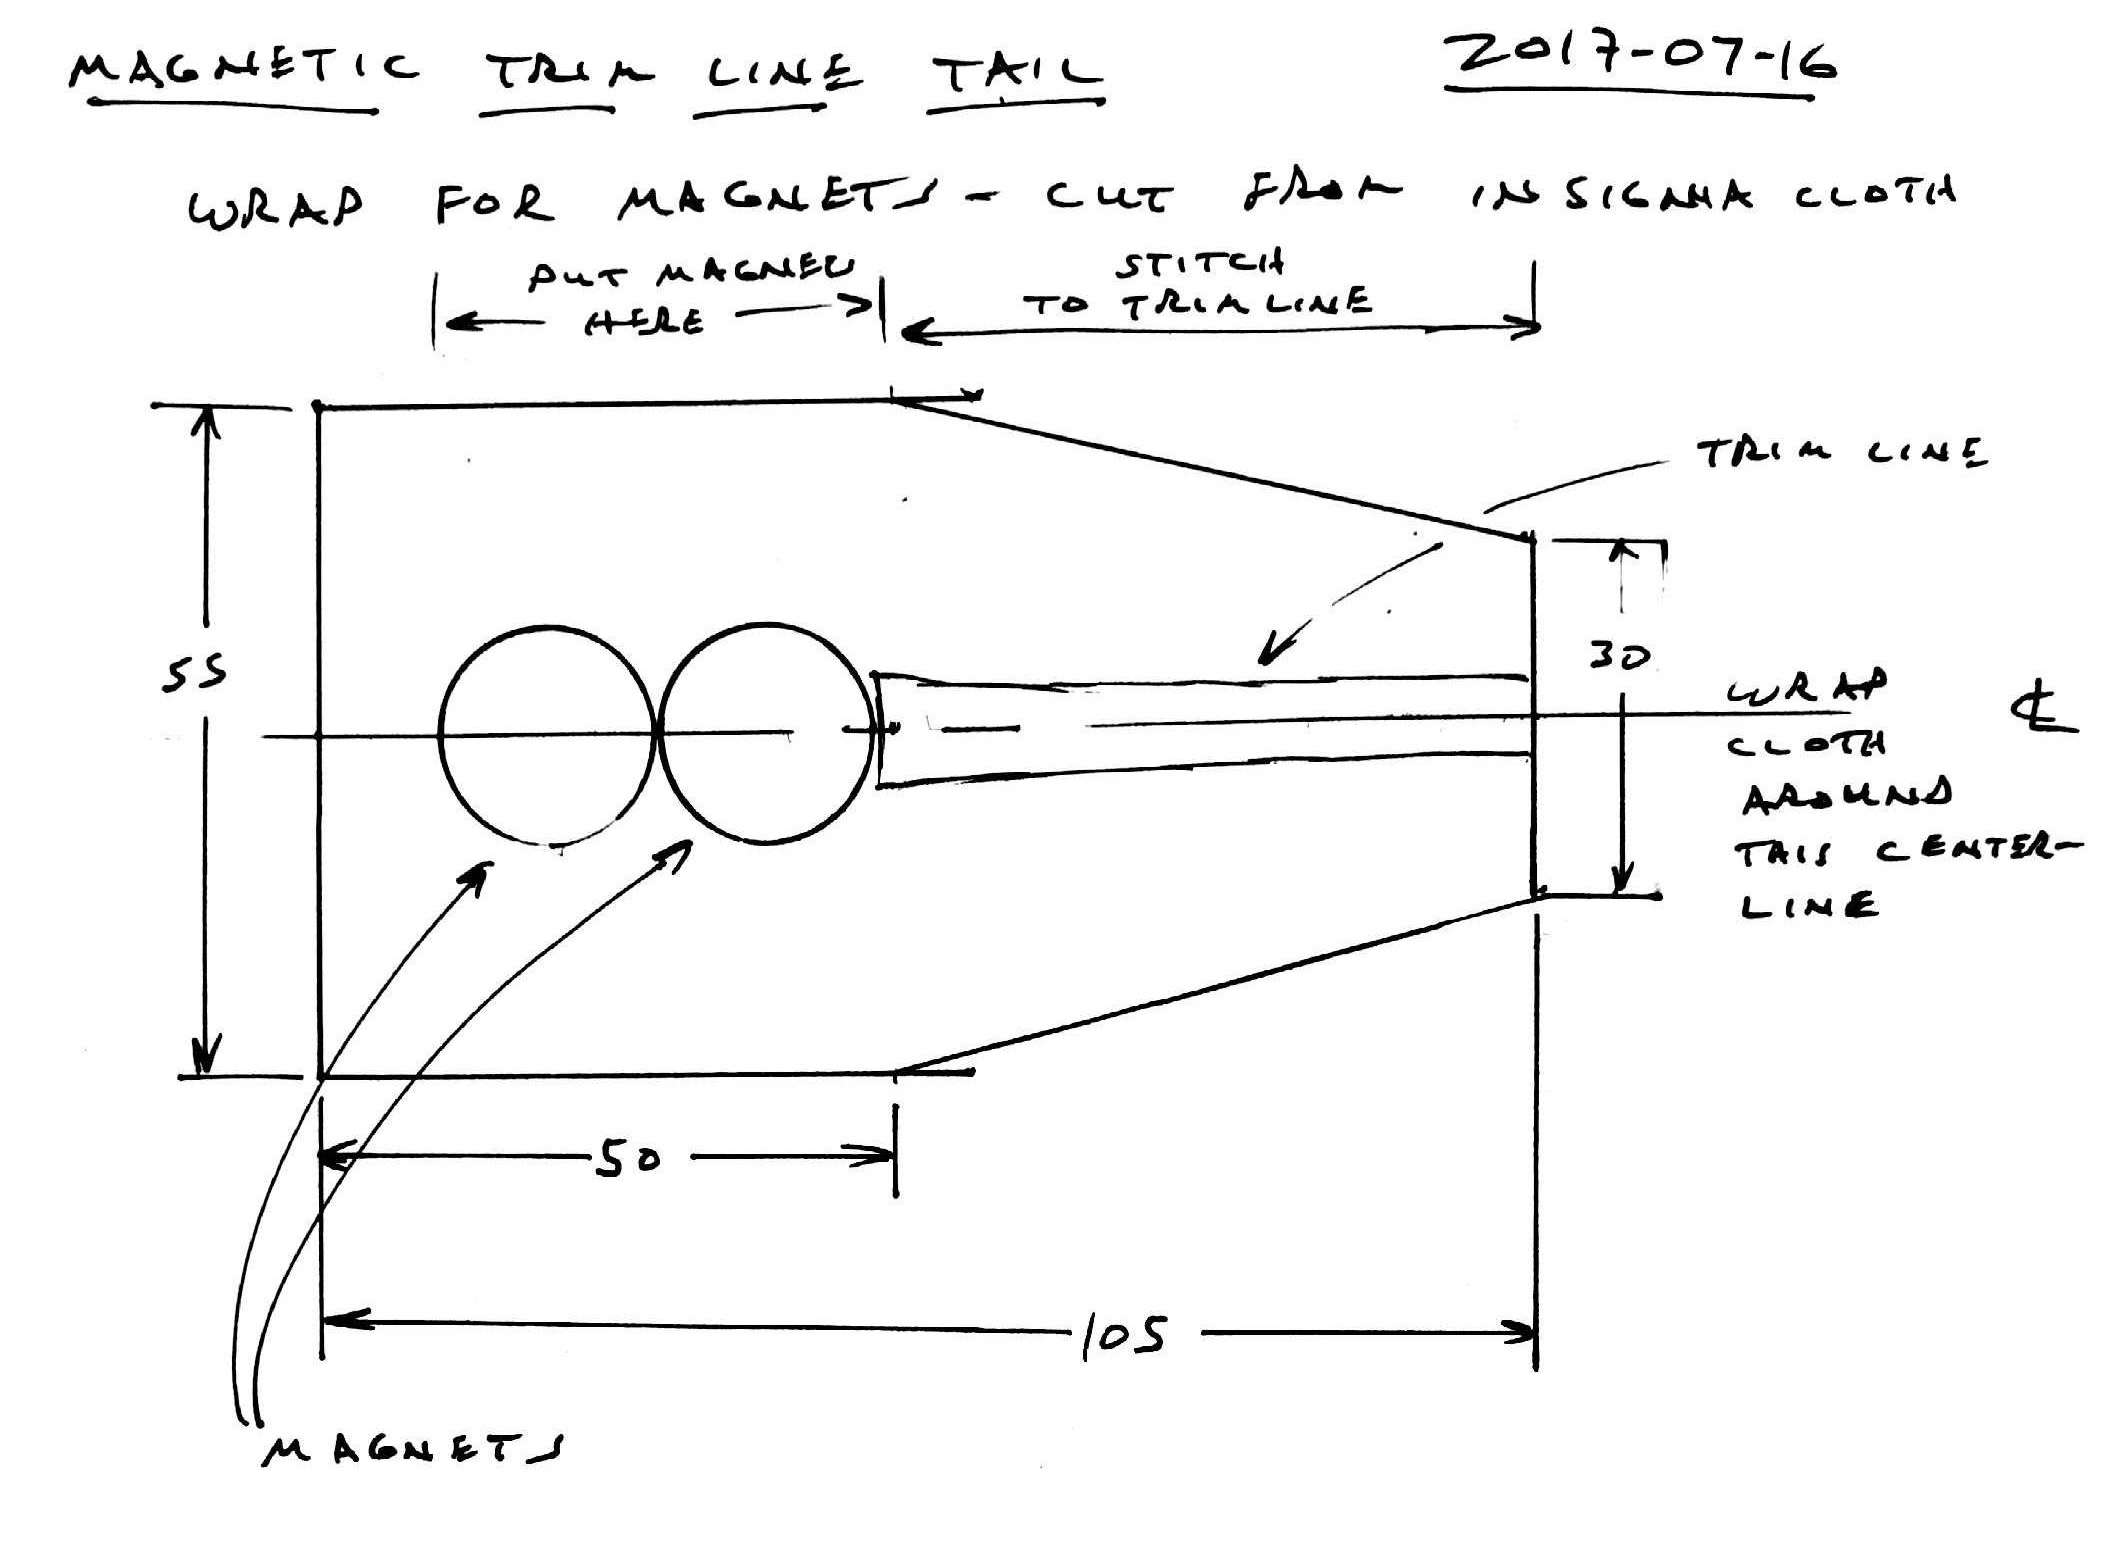 MAGNETIC TRIM LINE TAIL
2017-07-16
WRAP FOR MAGNETS - CUT FROM INSIGNIA CLOTH
PUT MAGNETS
HERE
STITCH
TO TRIM LINE
TRIM LINE
55
30
WRAP
CLOTH
AROUND
THIS CENTER-
LINE
℄
50
105
MAGNETS